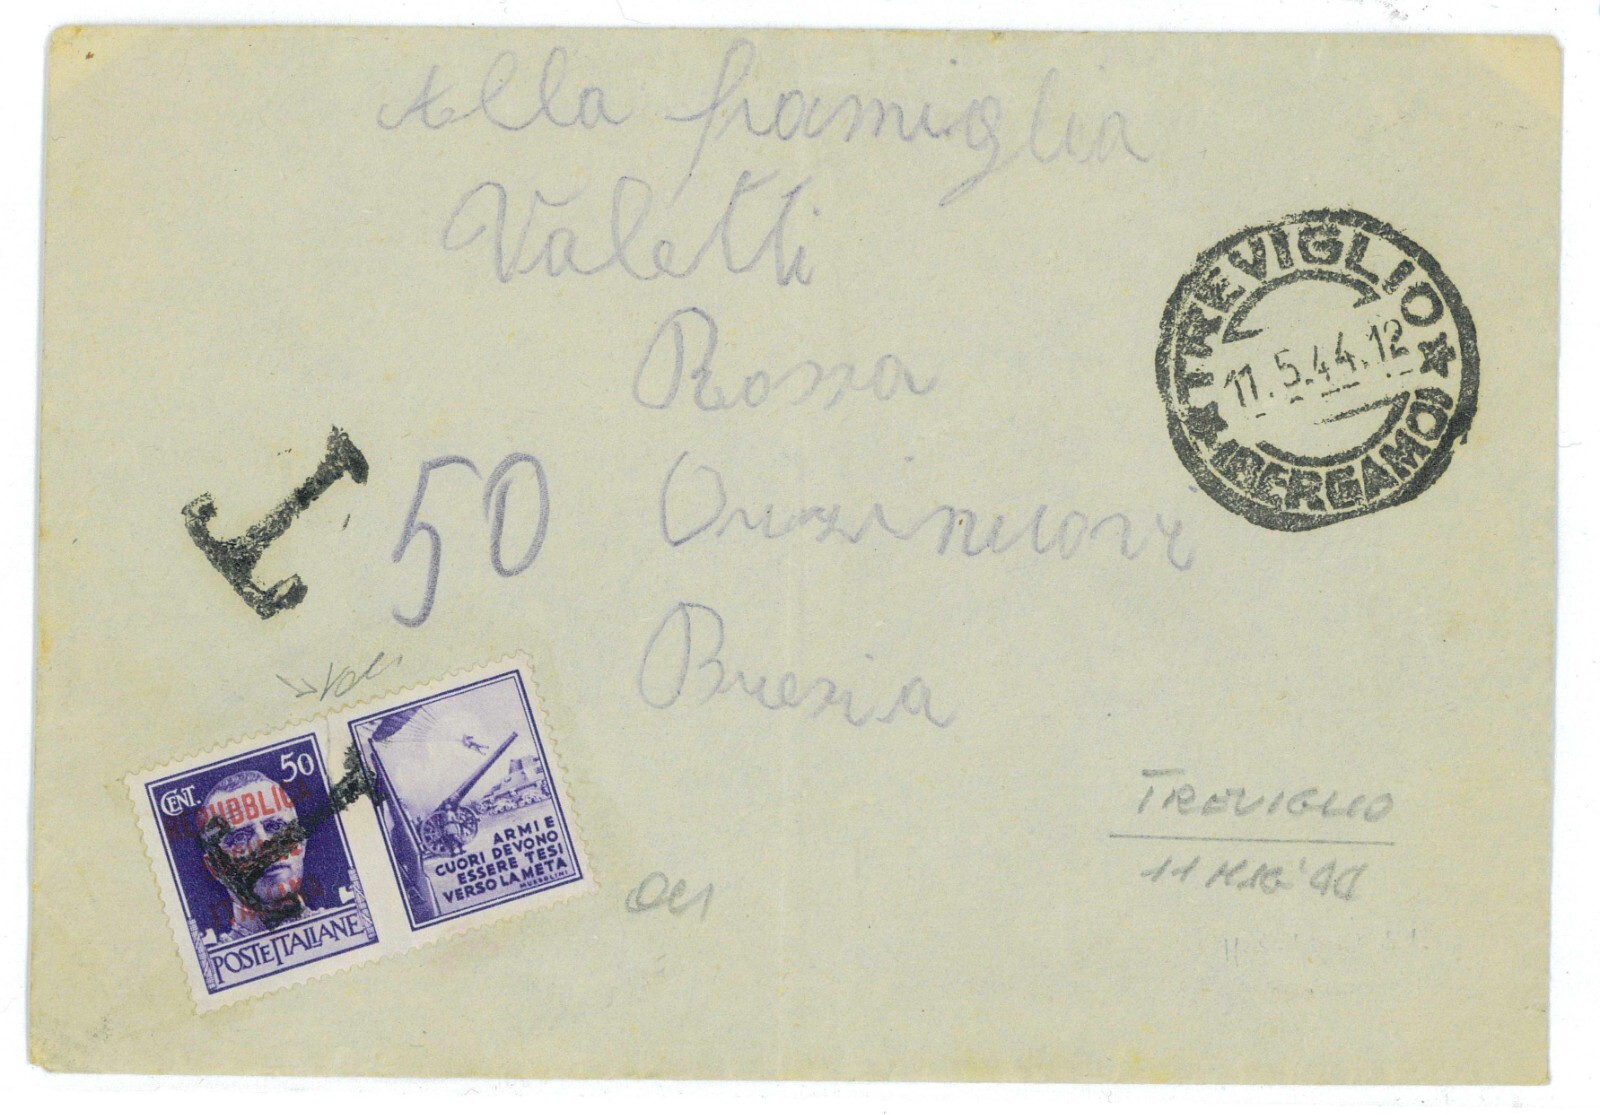 Alla famiglia
Valetti
Rossa
Orzinuovi
Brescia
TREVIGLIO
11.5.44.12
(BERGAMO)
T
50
CENT. 50
REPUBBLICA
SOCIALE
ITALIANA
POSTE ITALIANE
T
ARMI E
CUORI DEVONO
ESSERE TESI
VERSO LA META
MUSSOLINI
TREVIGLIO